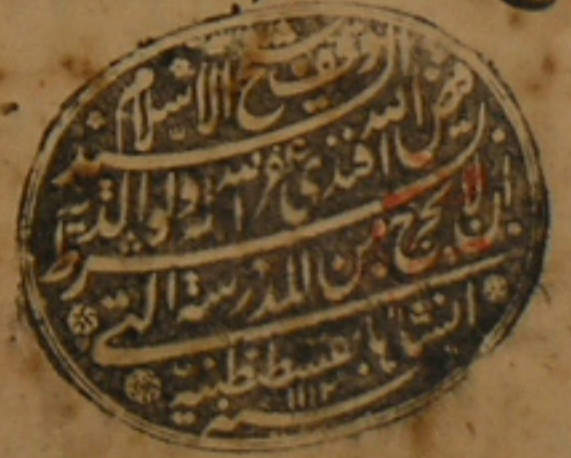 وقف شيخ الاسلام
السيد فيض الله افندي غفر الله له ولوالديه
بشرط ان لا يخرج من المدرسة التي
انشاها بقسطنطينية
سنه ١١١٢